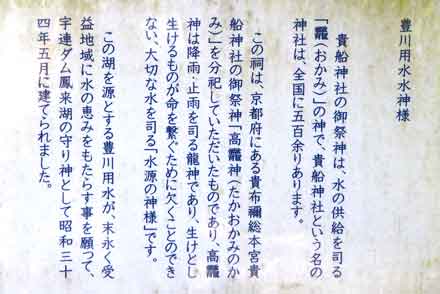 豊川用水水神様
貴船神社の御祭神は、水の供給を司る
「龗(おかみ)」の神で、貴船神社という名の
神社は、全国に五百余りあります。
この祠は、京都府にある貴布禰総本宮貴
船神社の御祭神「高龗神(たかおかみのか
み)」を分祀していただいたものであり、高龗
神は降雨・止雨を司る龍神であり、生けとし
生けるものが命を繋ぐために欠くことのでき
ない、大切な水を司る「水源の神様」です。
この湖を源とする豊川用水が、末永く受
益地域に水の恵みをもたらす事を願つて、
宇連ダム鳳来湖の守り神として昭和三十
四年五月に建てられました。